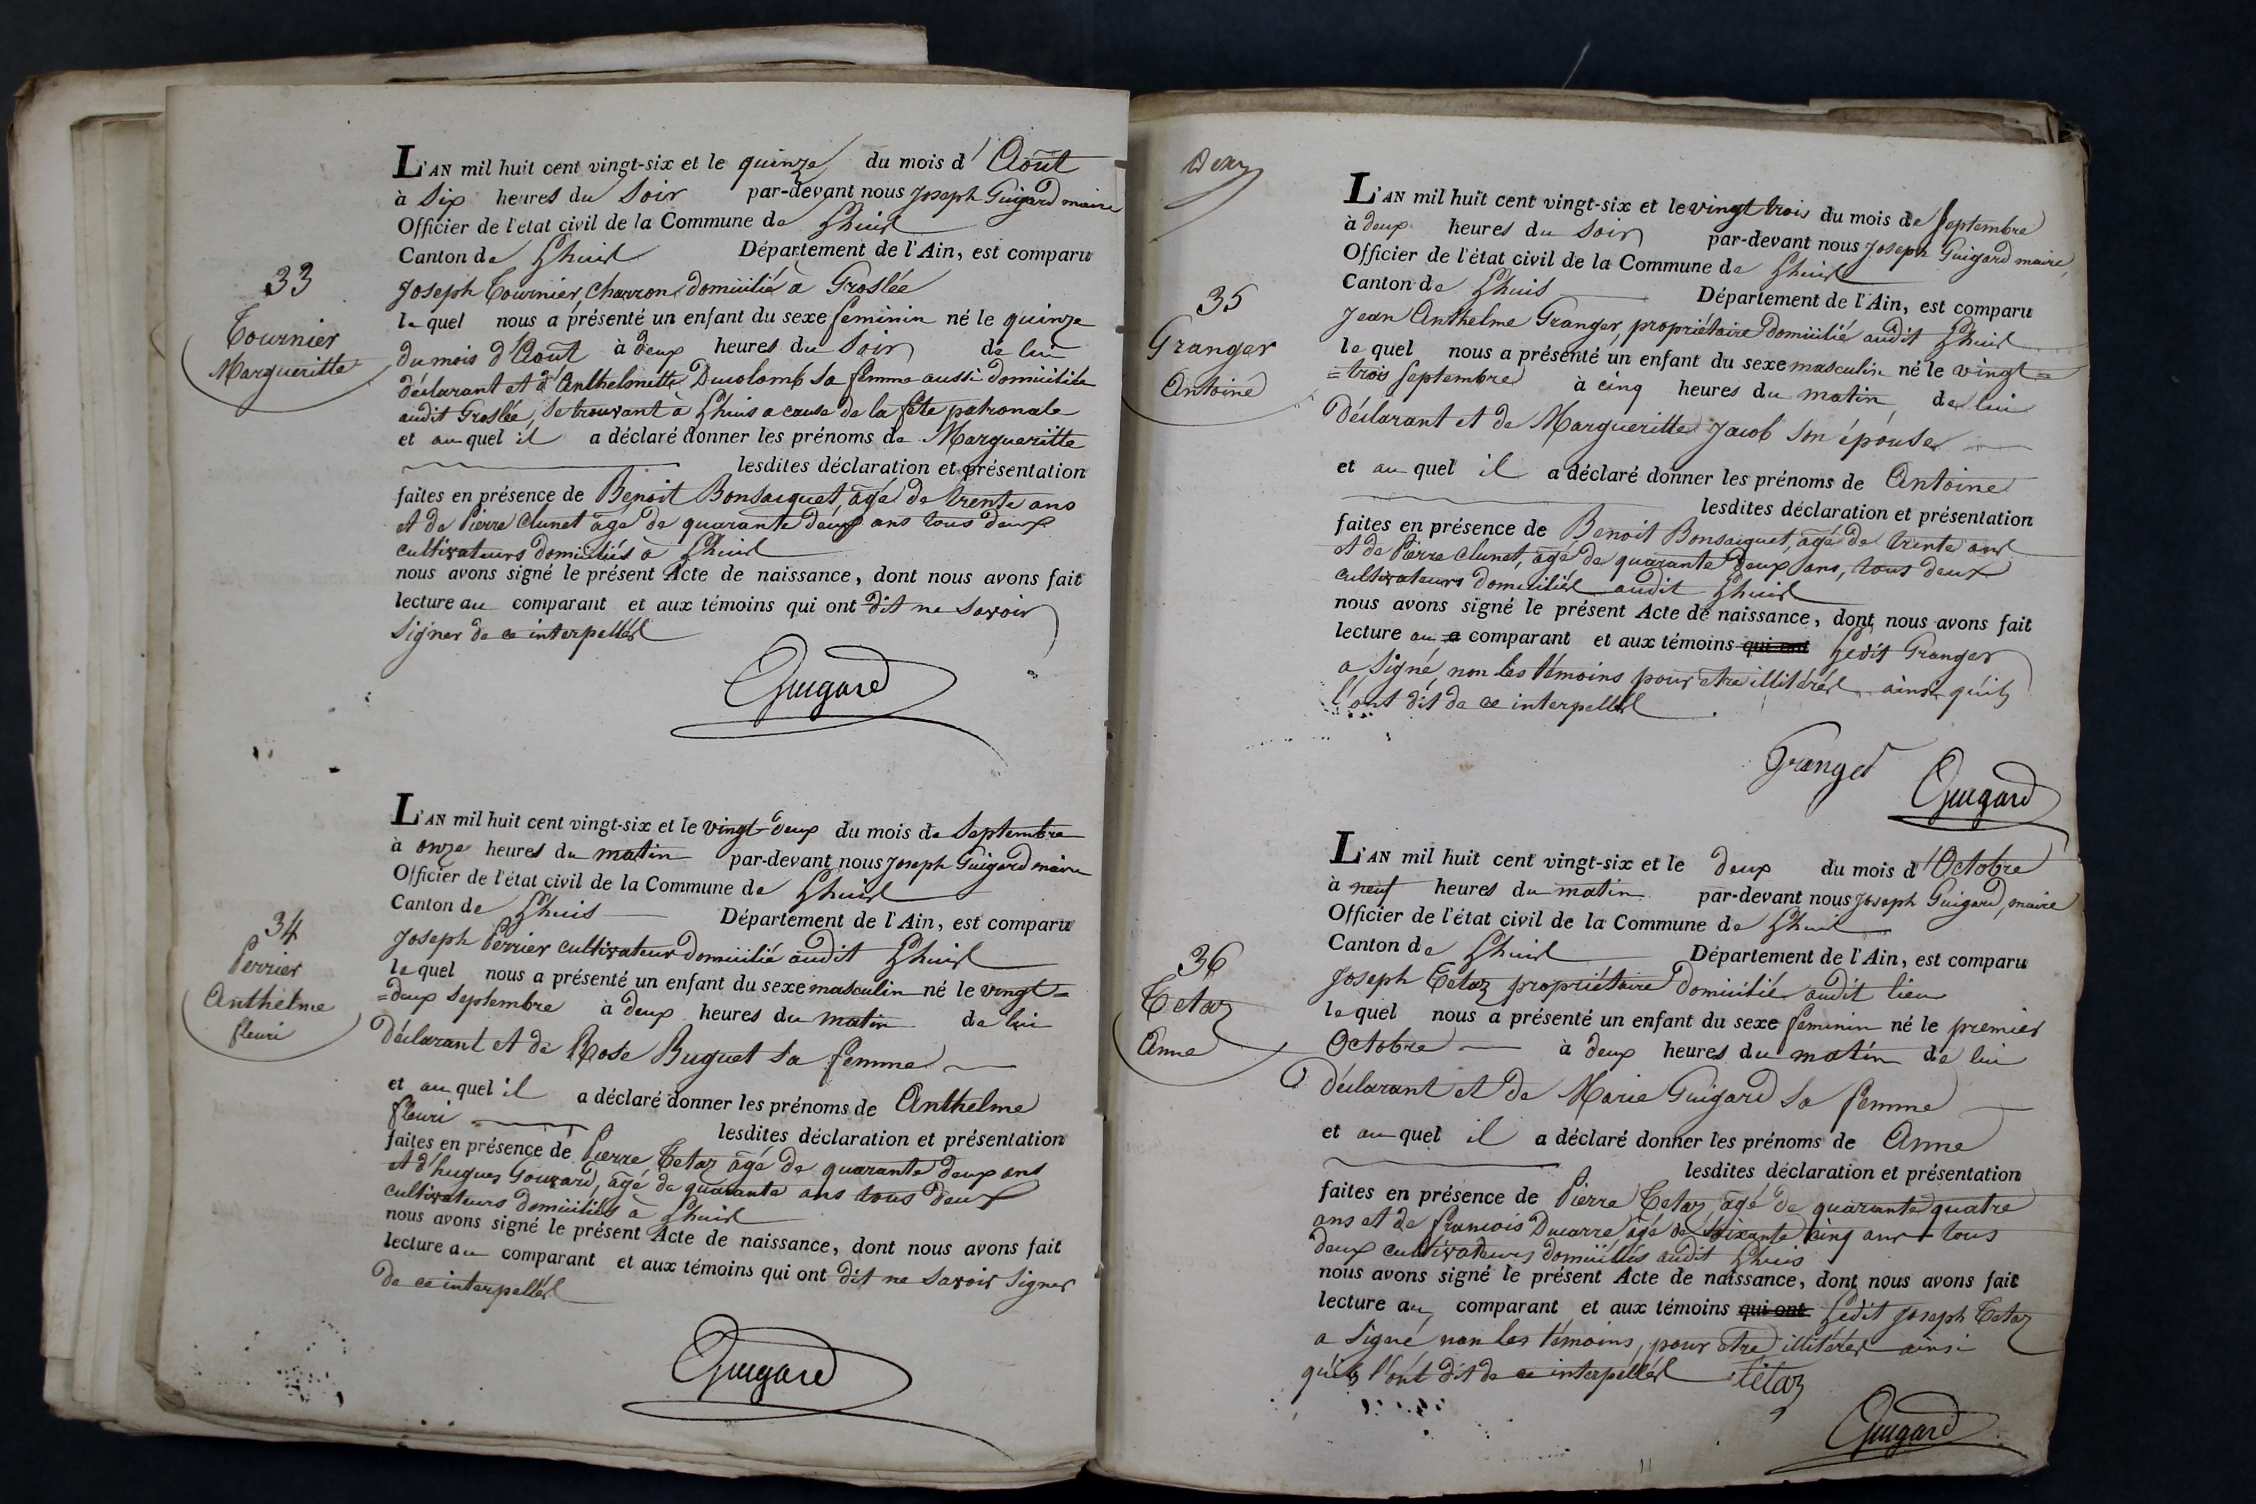 L'AN mil huit cent vingt-six et le quinze du mois d'Août
à six heures du soir par-devant nous Joseph Guigard maire
Officier de l'état civil de la Commune de Lhuis
Canton de Lhuis Département de l'Ain, est comparu
33
Joseph Tournier, Charron domicilié à Groslée
lequel nous a présenté un enfant du sexe feminin né le quinze
Tournier
Margueritte
du mois d'Août à deux heures du soir de lui
déclarant et d'Anthelmette Ducolomb sa femme aussi domiciliée
audit Groslée, se trouvant à Lhuis a cause de la fête patronale
et auquel il a déclaré donner les prénoms de Margueritte
lesdites déclaration et présentation
faites en présence de Benoit Bonsaiguet, âgé de trente ans
et de Pierre Clunet âgé de quarante deux ans tous deux
cultivateurs domiciliés à Lhuis
nous avons signé le présent Acte de naissance, dont nous avons fait
lecture au comparant et aux témoins qui ont dit ne savoir
signer de ce interpellés
Guigard
L'AN mil huit cent vingt-six et le vingt-deux du mois de Septembre
à onze heures du matin par-devant nous Joseph Guigard maire
Officier de l'état civil de la Commune de Lhuis
Canton de Lhuis Département de l'Ain, est comparu
34
Perrier
Anthelme
fleuri
Joseph Perrier cultivateur domicilié audit Lhuis
lequel nous a présenté un enfant du sexe masculin né le vingt=
=deux septembre à deux heures du matin de lui
déclarant et de Rose Buguet sa femme
et auquel il a déclaré donner les prénoms de Anthelme
fleuri lesdites déclaration et présentation
faites en présence de Pierre Tetaz âgé de quarante deux ans
et d'hugues Gouvard, âgé de quarante ans tous deux
cultivateurs domiciliés à Lhuis
nous avons signé le présent Acte de naissance, dont nous avons fait
lecture au comparant et aux témoins qui ont dit ne savoir signer
de ce interpellés
Guigard
L'AN mil huit cent vingt-six et le vingt trois du mois de Septembre
à deux heures du soir par-devant nous Joseph Guigard maire,
Officier de l'état civil de la Commune de Lhuis
Canton de Lhuis Département de l'Ain, est comparu
35
Granger
Antoine
Jean Anthelme Granger, propriétaire domicilié audit Lhuis
lequel nous a présenté un enfant du sexe masculin né le vingt=
=trois septembre à cinq heures du matin de lui
Déclarant et de Margueritte Jacob son épouse
et auquel il a déclaré donner les prénoms de Antoine
lesdites déclaration et présentation
faites en présence de Benoit Bonsaiguet, âgé de trente ans
et de Pierre Clunet, âgé de quarante deux ans, tous deux
cultivateurs domiciliés audit Lhuis
nous avons signé le présent Acte de naissance, dont nous avons fait
lecture au comparant et aux témoins qui ont Ledit Granger
a signé, non les témoins pour etre illitérés ainsi qu'ils
l'ont dit de ce interpellés
Granger
Guigard
L'AN mil huit cent vingt-six et le deux du mois d'Octobre
à neuf heures du matin par-devant nous Joseph Guigard, maire
Officier de l'état civil de la Commune de Lhuis
Canton de Lhuis Département de l'Ain, est comparu
36
Tetaz
Anne
Joseph Tetaz propriétaire domicilié audit lieu
lequel nous a présenté un enfant du sexe feminin né le premier
Octobre à deux heures du matin de lui
déclarant et de Marie Guigard sa femme
et auquel il a déclaré donner les prénoms de Anne
lesdites déclaration et présentation
faites en présence de Pierre Tetaz, âgé de quarante quatre
ans et de francois Ducarre, âgé de soixante cinq ans tous
deux cultivateurs domiciliés audit Lhuis
nous avons signé le présent Acte de naissance, dont nous avons fait
lecture au comparant et aux témoins qui ont Ledit Joseph Tetaz
a signé non les témoins, pour etre illitérés ainsi
qu'ils l'ont dit de ce interpellés Tétaz
Guigard